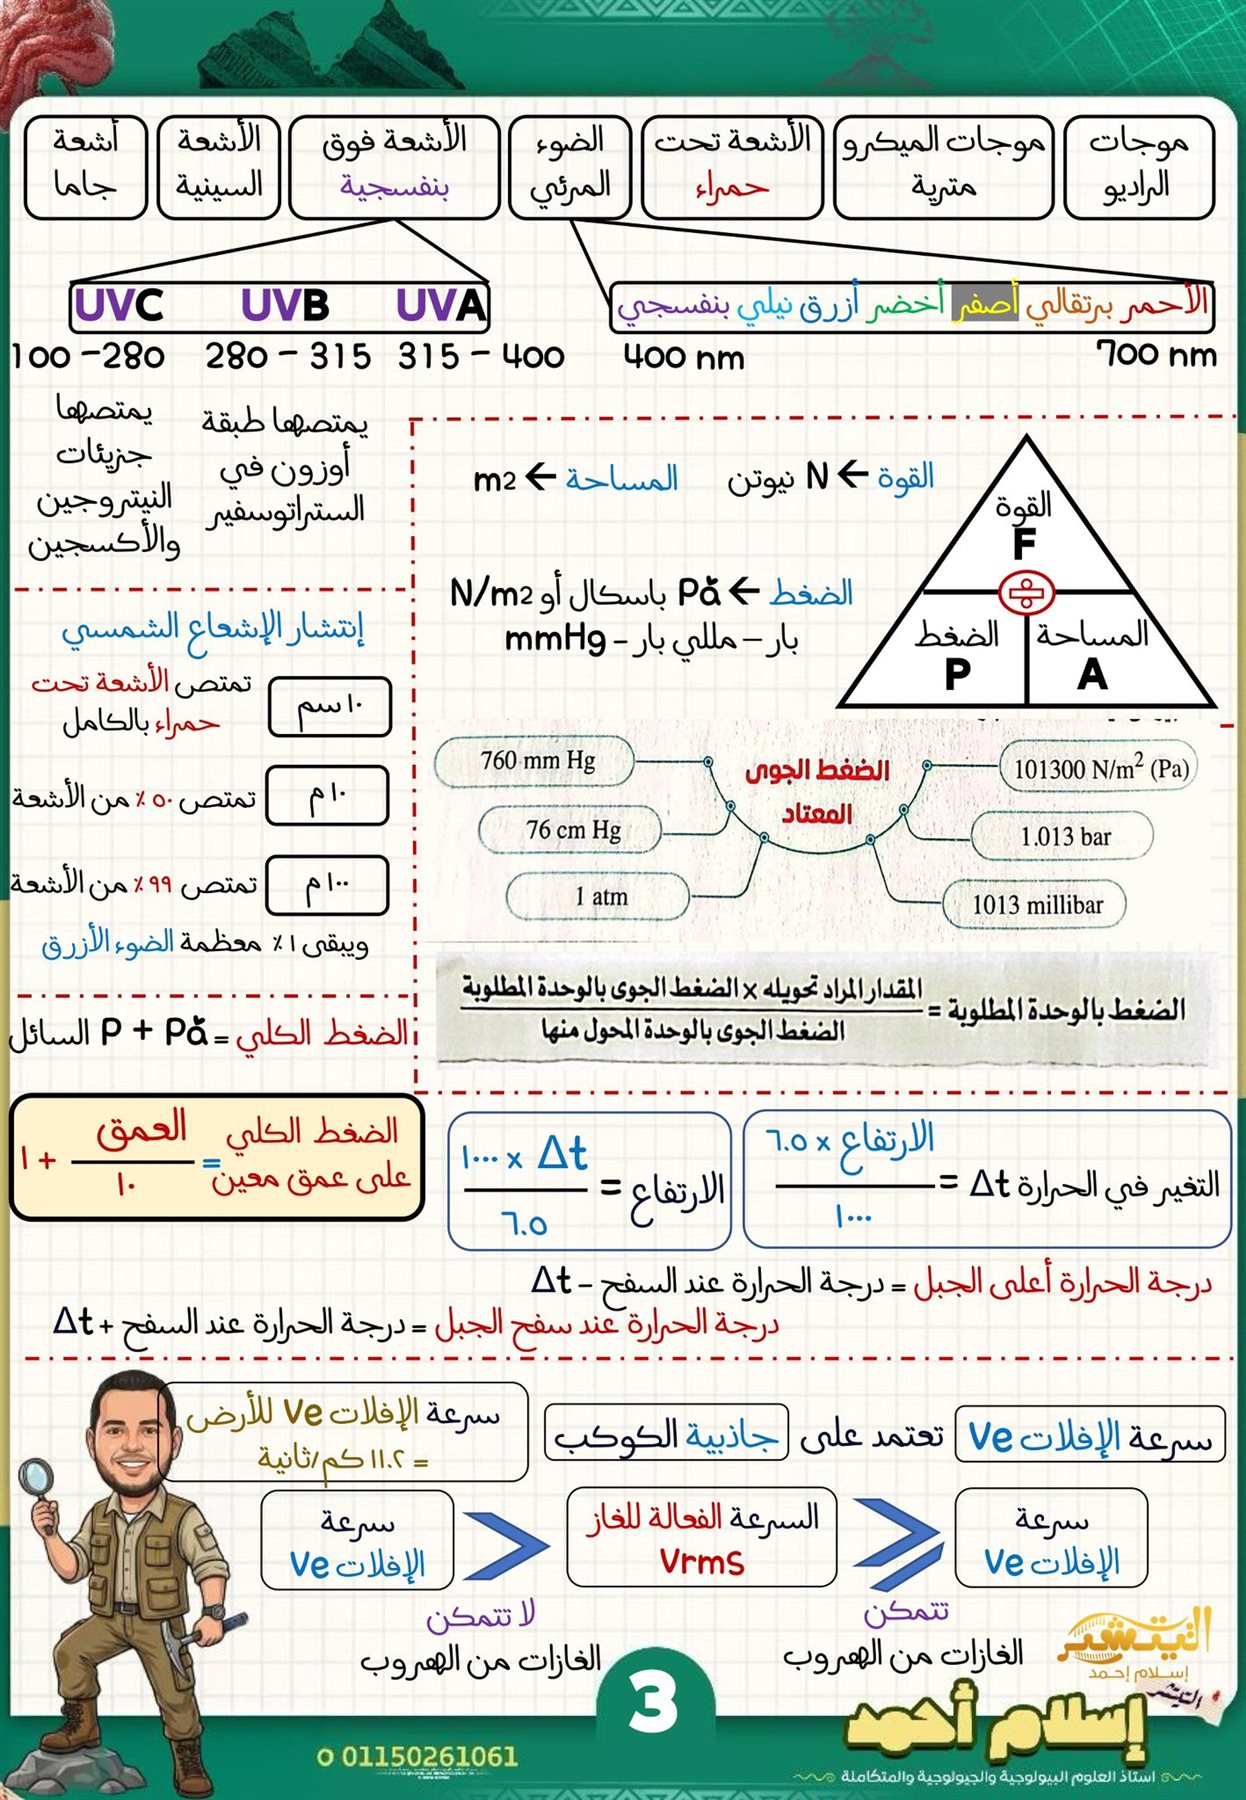 موجات الراديو
موجات الميكرو مترية
الأشعة تحت حمراء
الضوء المرئي
الأشعة فوق بنفسجية
الأشعة السينية
أشعة جاما
الأحمر برتقالي أصفر أخضر أزرق نيلي بنفسجي
700 nm
400 nm
UVA
UVB
UVC
315 – 400
280 – 315
100 –280
يمتصها طبقة
أوزون في
الستراتوسفير
يمتصها
جزيئات
النيتروجين
والأكسجين
القوة
F
الضغط
P
المساحة
A
القوة ← N نيوتن
المساحة ← m2
الضغط ← Pa باسكال أو N/m2
بار – مللي بار – mmHg
إنتشار الإشعاع الشمسي
١٠ سم
تمتص الأشعة تحت
حمراء بالكامل
١٠ م
تمتص ٥٠ ٪ من الأشعة
١٠٠ م
تمتص ٩٩ ٪ من الأشعة
ويبقى ١ ٪ معظمة الضوء الأزرق
الضغط الجوى
المعتاد
760 mm Hg
76 cm Hg
1 atm
101300 N/m² (Pa)
1.013 bar
1013 millibar
الضغط بالوحدة المطلوبة =
المقدار المراد تحويله × الضغط الجوى بالوحدة المطلوبة
الضغط الجوى بالوحدة المحول منها
الضغط الكلي = P + Pa السائل
الضغط الكلي
على عمق معين
=
العمق
١٠
+ ١
التغير في الحرارة Δt =
الارتفاع × ٦.٥
١٠٠٠
الارتفاع =
Δt × ١٠٠٠
٦.٥
درجة الحرارة أعلى الجبل = درجة الحرارة عند السفح – Δt
درجة الحرارة عند سفح الجبل = درجة الحرارة عند السفح + Δt
سرعة الإفلات Ve تعتمد على جاذبية الكوكب
سرعة الإفلات Ve للأرض
= ١١.٢ كم/ثانية
سرعة
الإفلات Ve
السرعة الفعالة للغاز
Vrms
سرعة
الإفلات Ve
تتمكن
الغازات من الهروب
لا تتمكن
الغازات من الهروب
التيتشر
إسلام إحمد
التيتشر
إسلام أحمد
استاذ العلوم البيولوجية والجيولوجية والمتكاملة
3
01150261061